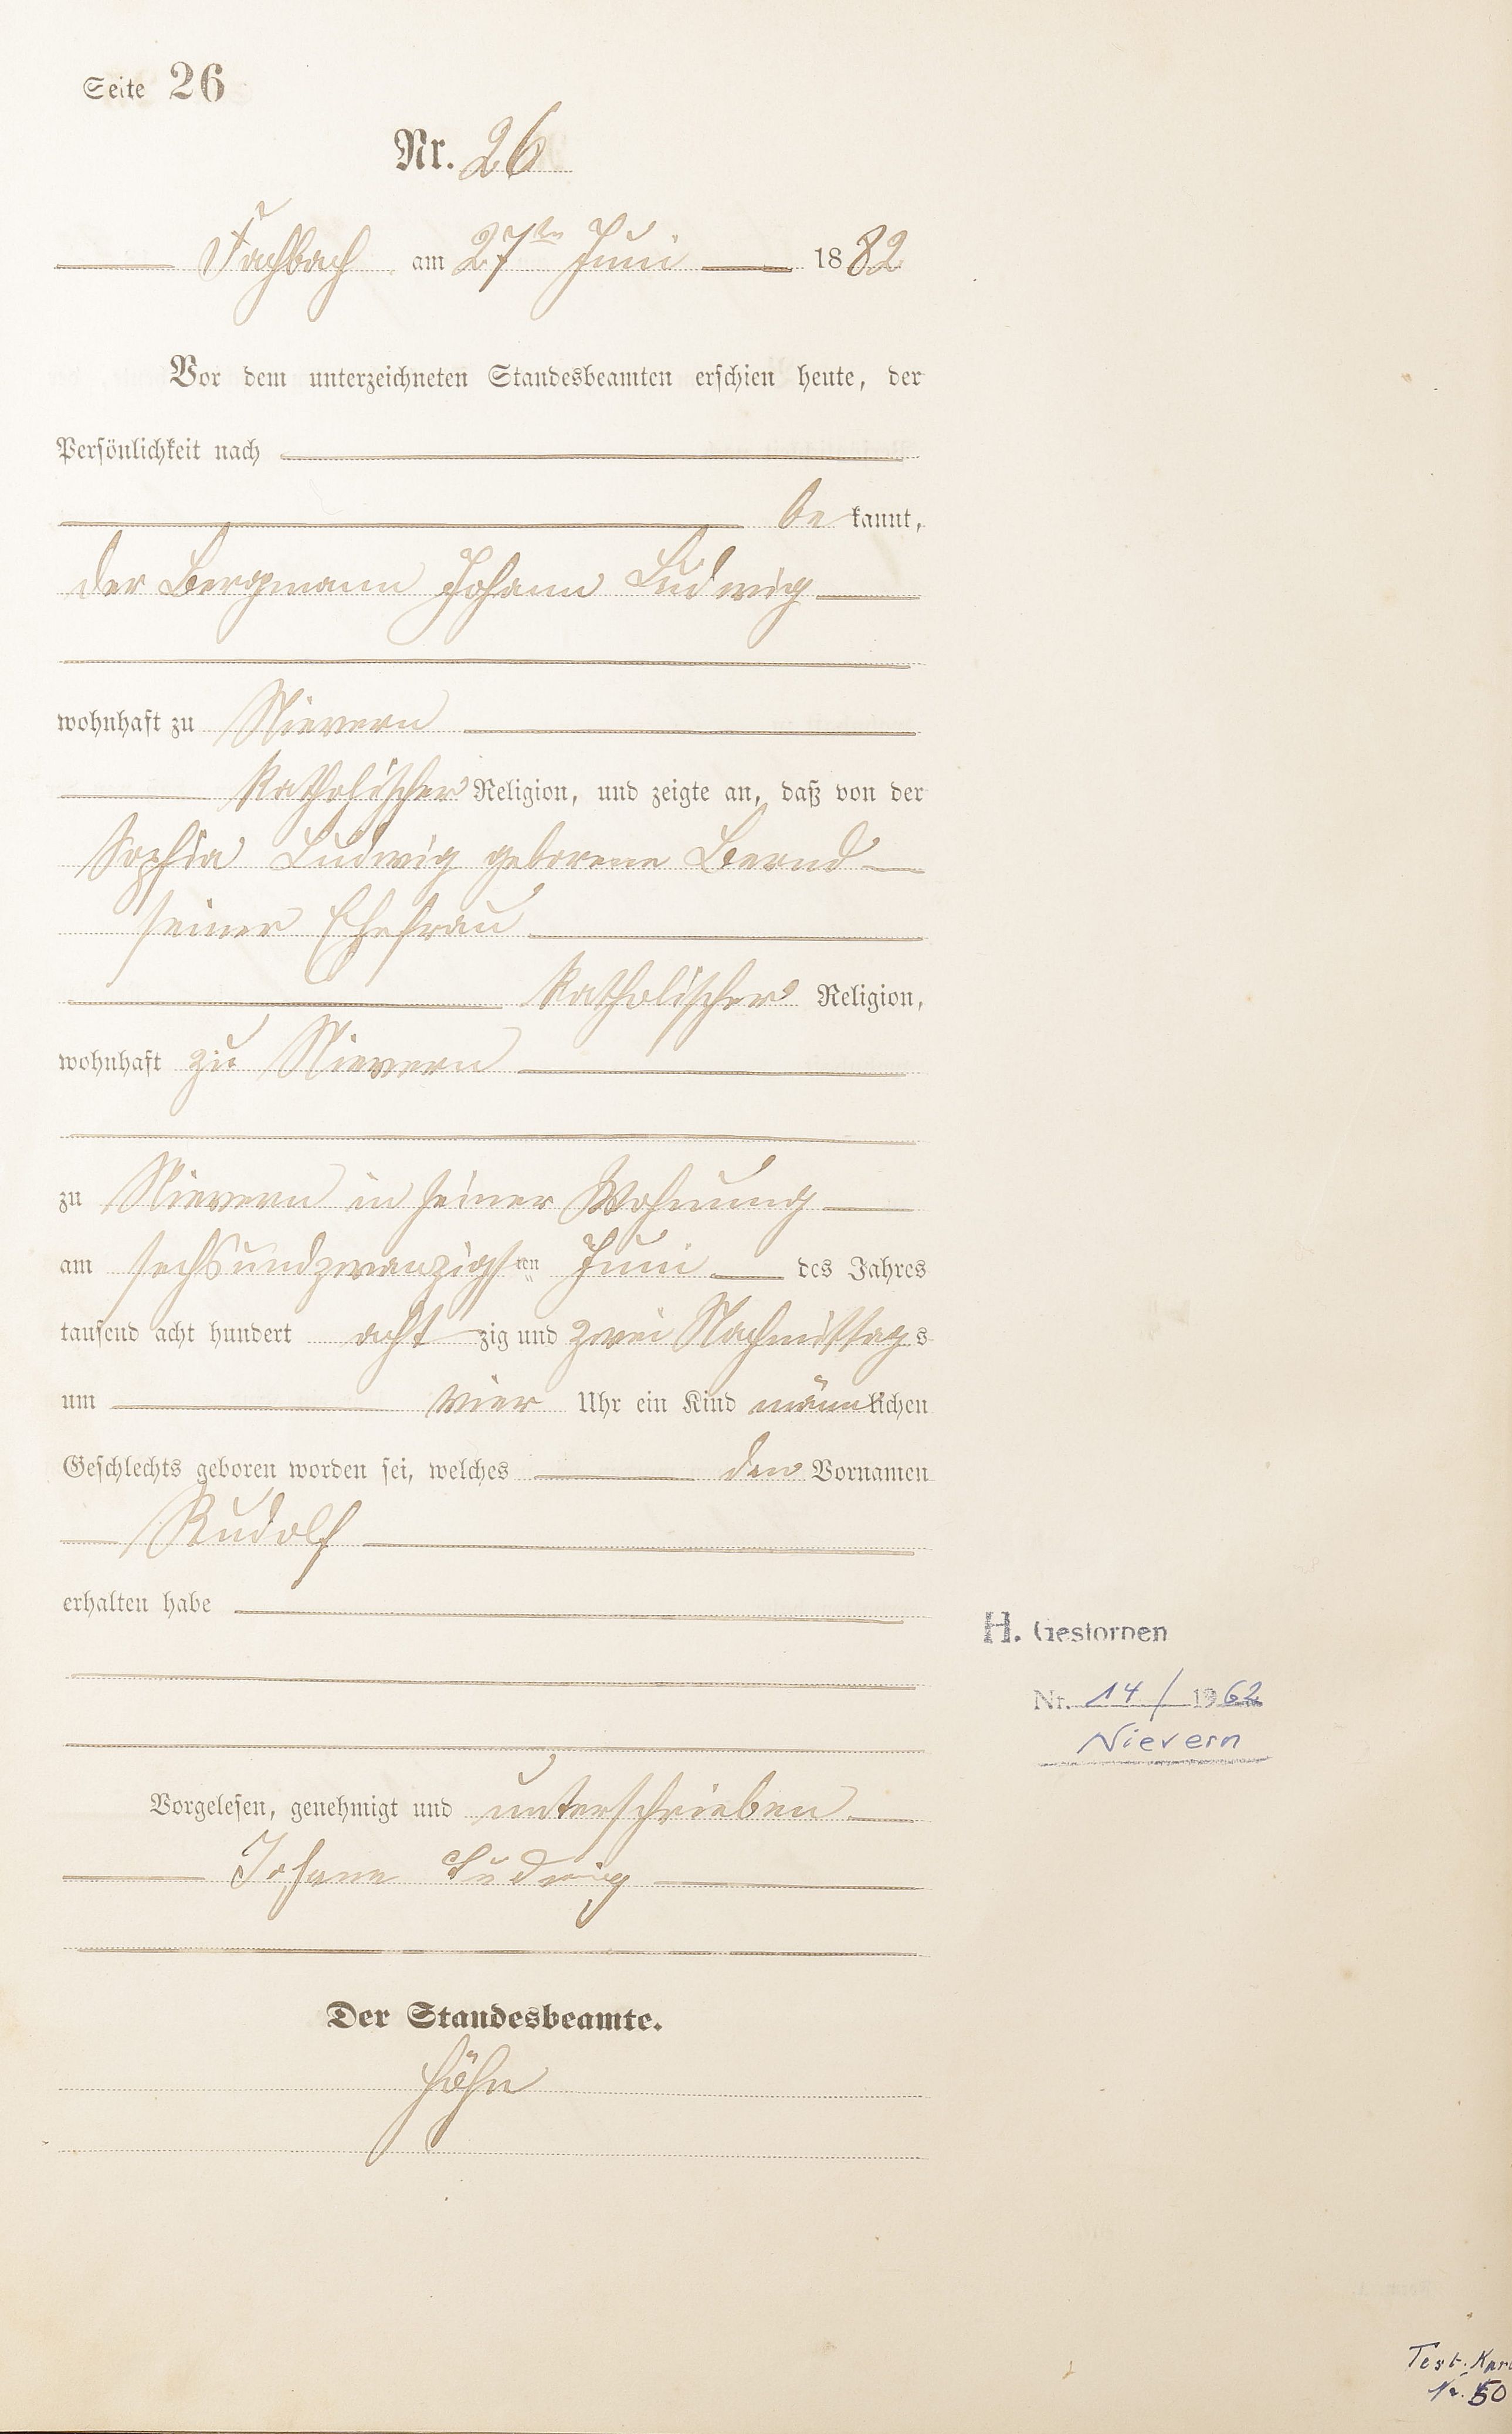 Seite 26
Nr. 26
Fachbach am 27ten Juni 1882
Vor dem unterzeichneten Standesbeamten erschien heute, der
Persönlichkeit nach
bekannt,
der Bergmann Johann Ludwig
wohnhaft zu Nievern
katholischer Religion, und zeigte an, daß von der
Sophia Ludwig geborene Bernd
seiner Ehefrau
katholischer Religion,
wohnhaft zu Nievern
zu Nievern in seiner Wohnung
am sechsundzwanzigsten Juni des Jahres
tausend acht hundert achtzig und zwei Nachmittags
um vier Uhr ein Kind männlichen
Geschlechts geboren worden sei, welches den Vornamen
Rudolf
erhalten habe
H. Gestorben
Nr. 14/1962
Nievern
Vorgelesen, genehmigt und unterschrieben
Johann Ludwig
Der Standesbeamte.
Höhn
Test.
Nr. 50